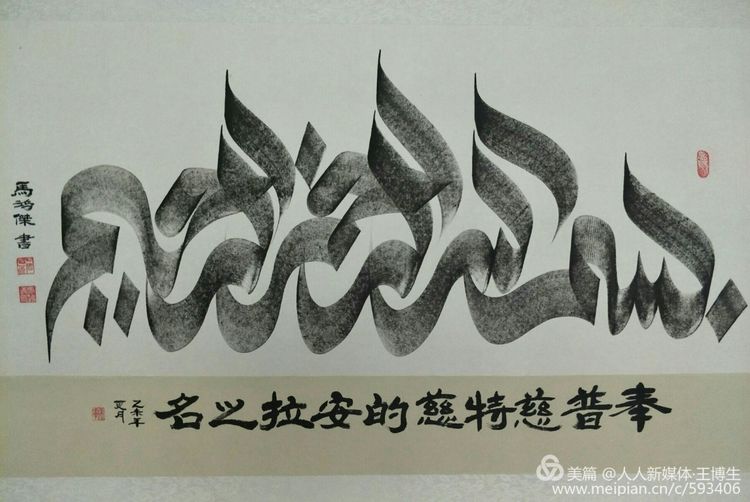 بسم الله الرحمن الرحيم
馬鴻傑書
奉普慈特慈的安拉之名
乙未年
夏月
美篇 @人人新媒体·王博生
www.meipian.cn/c/593406